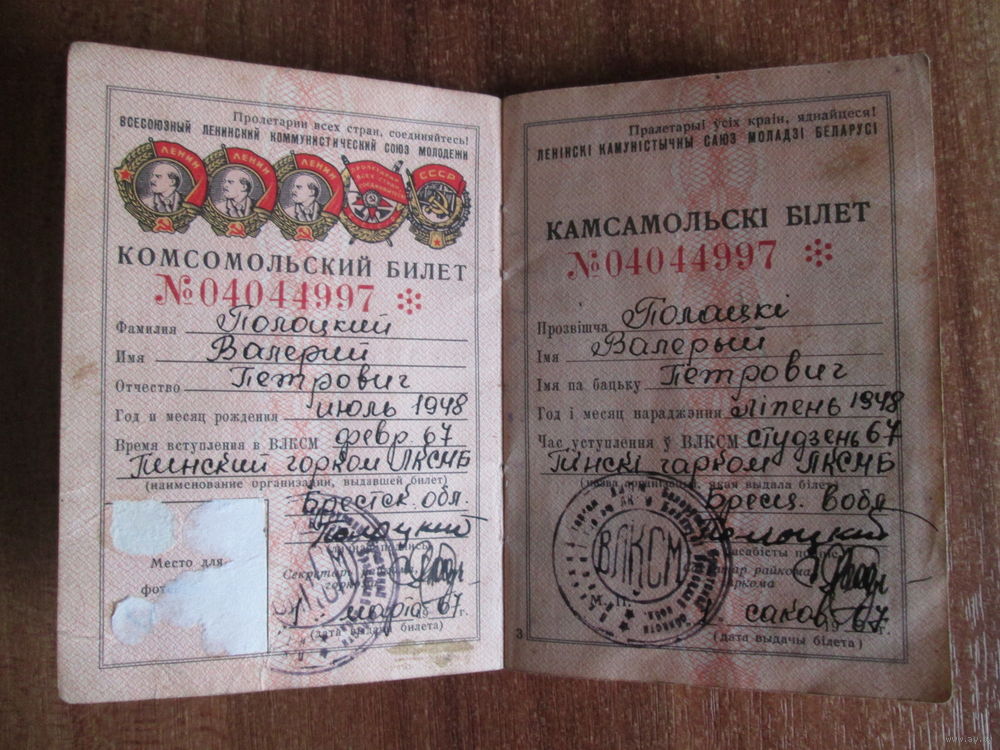 Пролетарии всех стран, соединяйтесь!
ВСЕСОЮЗНЫЙ ЛЕНИНСКИЙ КОММУНИСТИЧЕСКИЙ СОЮЗ МОЛОДЕЖИ
ЛЕНИН ЛЕНИН ЛЕНИН ПРОЛЕТАРИИ ВСЕХ СТРАН СОЕДИНЯЙТЕСЬ СССР
КОМСОМОЛЬСКИЙ БИЛЕТ
№ 04044997
Фамилия Полоцкий
Имя Валерий
Отчество Петрович
Год и месяц рождения июль 1948
Время вступления в ВЛКСМ февр. 67
Пинский горком ЛКСМБ
(наименование организации, выдавшей билет)
Брестск. обл.
Полоцкий
Место для
Секретарь
марта 67 г.
(дата выдачи билета)
Пралетарыі ўсіх краін, яднайцеся!
ЛЕНІНСКІ КАМУНІСТЫЧНЫ САЮЗ МОЛАДЗІ БЕЛАРУСІ
КАМСАМОЛЬСКІ БІЛЕТ
№ 04044997
Прозвішча Полацкі
Імя Валерый
Імя па бацьку Петрович
Год і месяц нараджэння ліпень 1948
Час уступлення ў ВЛКСМ студзень 67
Пінскі гарком ЛКСМБ
(назва арганізацыі, якая выдала білет)
Брэсц. вобл
Полоцкий
ВЛКСМ
райкома
гаркома
сакав. 67 г.
(дата выдачы білета)
3
www.ay.by